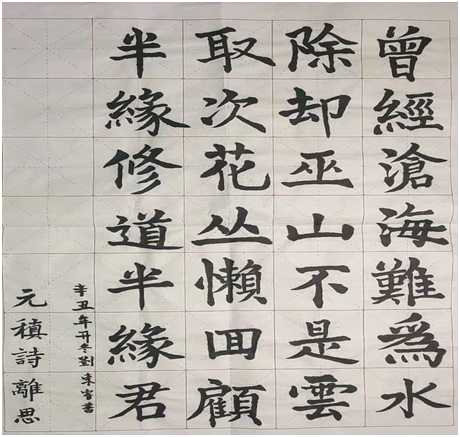 曾經滄海難爲水
除却巫山不是雲
取次花丛懶囬顧
半緣修道半緣君
辛丑年冬劉東書
元稹詩離思